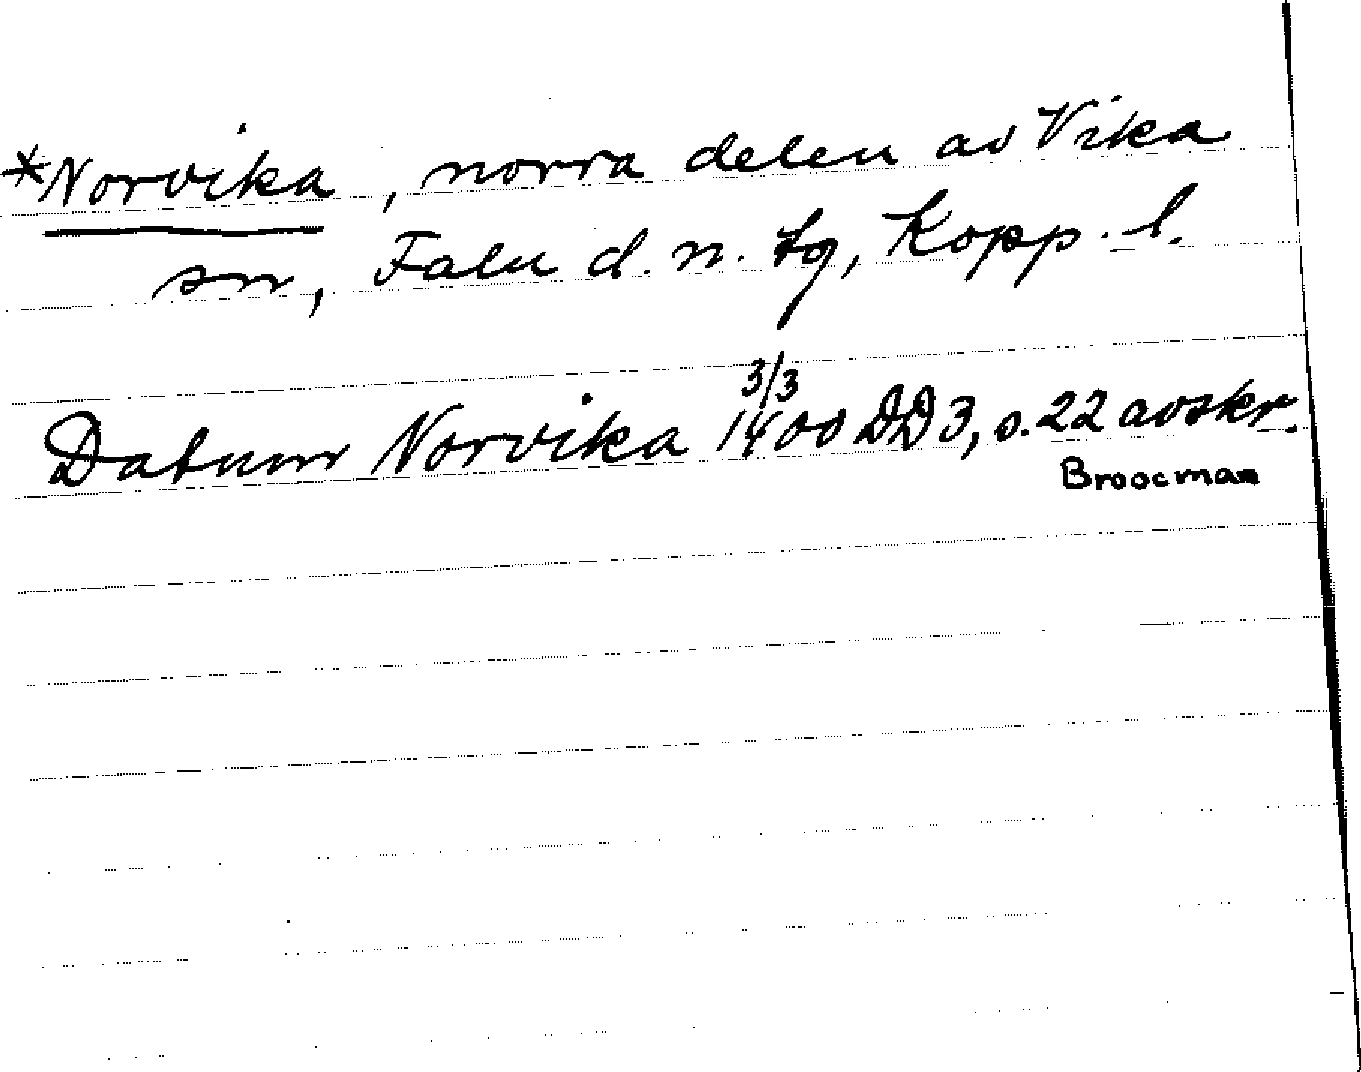 *Norvika, norra delen av Vika
sn, Falu d. n. tg, Kopp. l.
Datum Norvika 3/3 1400 DD 3, s. 22 avskr.
Broocman